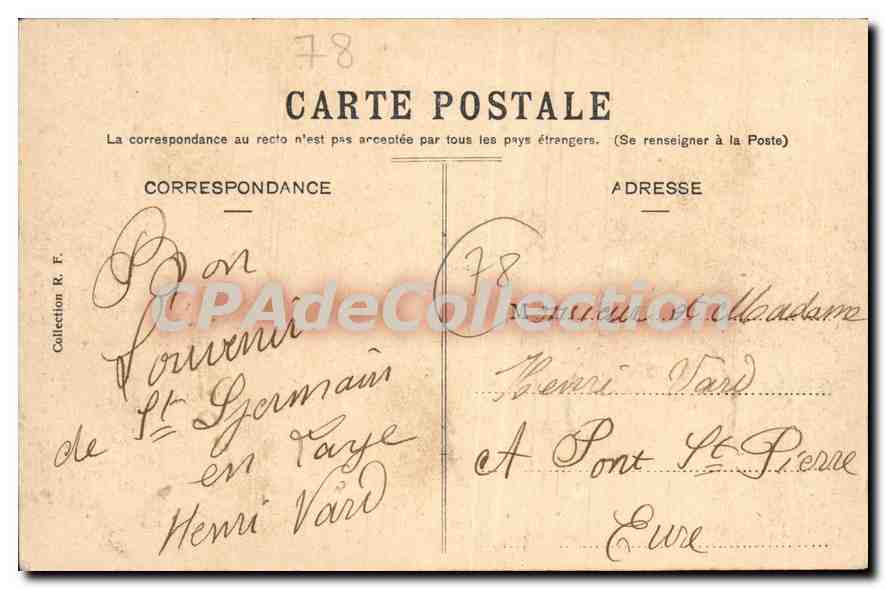 78
CARTE POSTALE
La correspondance au recto n'est pas acceptée par tous les pays étrangers. (Se renseigner à la Poste)
CORRESPONDANCE
Bon
Souvenir
de St Germain
en Laye
Henri Vard
Collection R. F.
ADRESSE
78
Monsieur et Madame
Henri Vard
A Pont St Pierre
Eure
CPAdeCollection